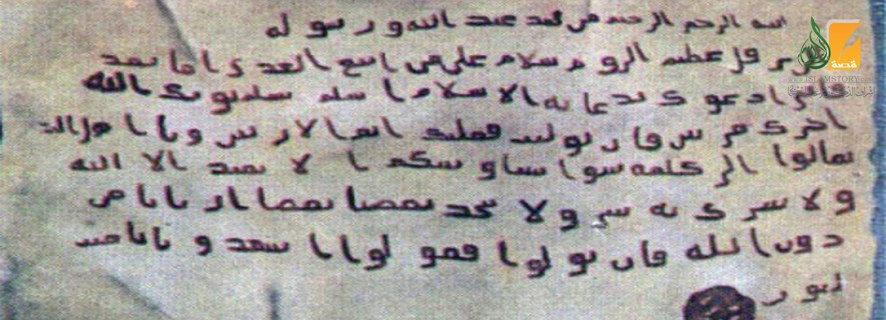 الله الرحمن الرحيم من محمد عبد الله ورسوله
هرقل عظيم الروم سلام على من اتبع الهدى اما بعد
ادعوك بدعاية الاسلام اسلم تسلم يوتك الله
اجرك مرتين فان توليت فعليك اثم الاريس ويا اهل
تعالوا الى كلمة سوا بيننا وبينكم الا نعبد الا الله
ولا نشرك به شي ولا يتخذ بعضنا بعضا اربابا من
دون الله فان تولوا فقولوا اشهدوا بانا
قصة
ISLAMSTORY